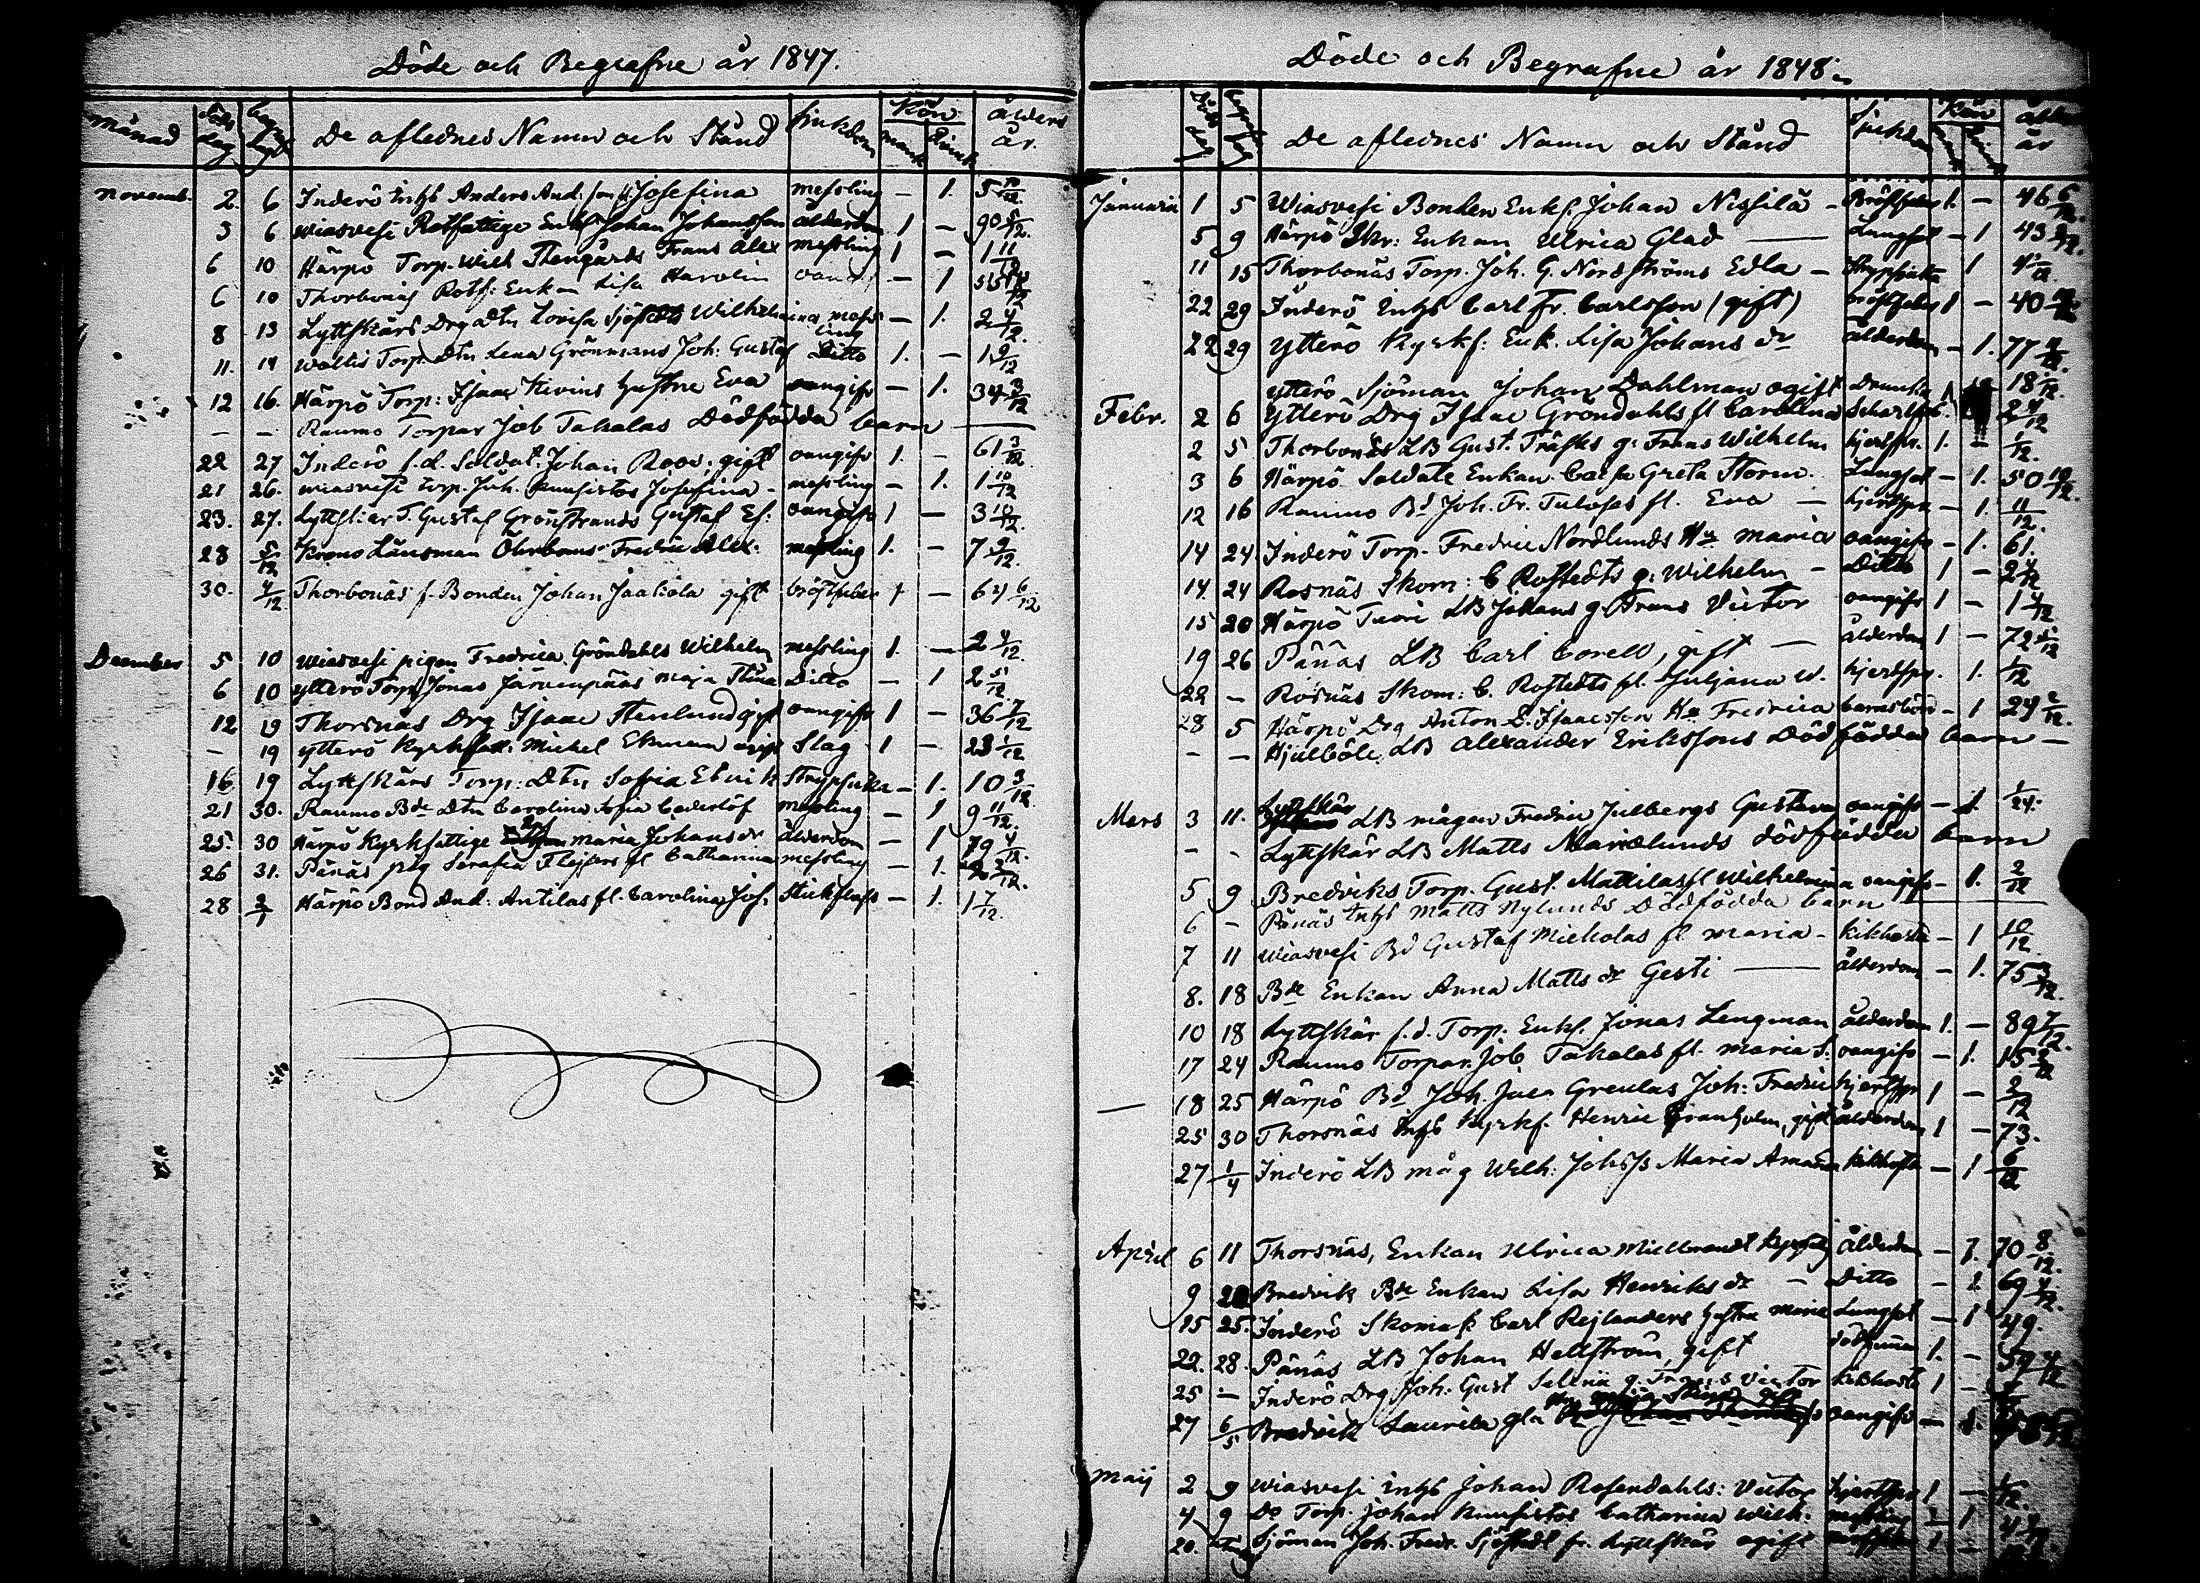 Döde och Begrafne år 1847.
Månad döds dag begr. dag De aflednes Namn och Stånd Sjukdom Kön mank qvink ålders år.
Novemb. 2. 6 Inderö Inhs Anders And:son fl Josefina messling – 1. 5 10/12
3 6 Wiasvesi Rotfattige Enkl. Johan Johansson ålderdom 1 – 90 5/12.
6 10 Härpö Torp. Wilh Stengårds Frans Alex messling 1 – 1 11/12
6 10 Thorbonäs Rotf: Enkan Lisa Harolin – 1
8 13 Lyttskärs Drg Dtn Lovisa Wilhelmina messling – 1. 2 4/12.
11. 14 Torp. Dtn Lena Grönmans Joh: Gustaf Ditto 1. – 1 9/12
12 16. Härpö Torp: Isaac Kivins hustru Eva oangifv – 1. 34 3/12
– – Raumo Torpar Job Takalas Dödfödda barn
22 27 Inderö f.d. Soldat. Johan Roos; gift oangifv 1. – 61 3/12
21 26. Wiasvesi torp. Joh. Kunsistos Josefina – messling – 1. 1 10/12
23. 27. Lyttskär T. Gustaf Grönstrands Gustaf Ef: oangifv 1 – 3 10/12.
28 5/12 Krono Länsman Öhrboms Fredric Alex. messling 1. – 7 9/12.
30. 4/12 Thorbonäs f. Bonden Johan Jaakola gift bröstfeber 1 – 64 6/12
December 5 10 Wiasvesi pigan Fredrica Gröndahls Wilhelm messling 1. – 2 4/12.
6 10 Ytterö Torp Jonas Järvenpääs Maja Stina Ditto – 1 2 5/12.
12 19 Thorsnäs Drg Isaac Stenlund gift oangifv 1 – 36 7/12
– 19 Ytterö Kyrkfatt: Michel Ekman ogift Slag 1 – 28 1/12
16 19 Lyttskärs Torp: Dtn Sofia Elvik Strypsjuka – 1. 10 3/12
21 30. Raumo Bde Dtn Carolina Sofia Cederlöf messling – 1 9 11/12.
25. 30 Härpö Kyrkfattige Maria Johansdr ålderdom – 1 79 4/12.
26 31. Pänäs pig Serafia fl Catharina messling – 1.
28 2/1 Härpö Bond And: Antilas fl. Carolina Joh: Stickfluss – 1. 1 7/12.
Döde och Begrafne år 1848.
Döds dag Begraf. dag De aflednes Namn och Stånd Sjukdom Kön ålder år
Januari 1 5 Wiasvesi Bonden Enkl. Johan Nissilä – Bröstfeber 1. – 46 6/12.
5 9 Härpö Enkan Ulrica Glad Lungsot – 1 43
11 15 Thorbonäs Torp. Joh. G. Nordströms Edla – Strypsjuka 1
22 29 Inderö Inhs Carl Fr. Carlsson (gift) bröstfeber 1 – 40
22 29 Ytterö Kyrkf: Enk. Lisa Johans dr ålderdom – 1. 77
Ytterö Sjöman Johan Dahlman ogift 18
Febr. 2 6 Ytterö Drg Isaac Gröndahls fl Carolina Scharlf. 2 4/12
2 5 Thorbonäs LB Gust. Träsks g: Frans Wilhelm hjertspr. 1. – 1/12.
3 6 Härpö Soldats Enkan Caisa Greta Storm. Lungsot – 1. 50 10/12.
12 16 Raumo Bd Joh. Fr. Tulosas fl. Eva – hjertspr – 1. 11/12.
14 24 Inderö Torp. Fredric Nordlunds Hu Maria oangifv – 1. 61.
14 24 Rosnäs Skom: C Rostedts g: Wilhelm – Ditto 1 – 2
15 20 Härpö Tuori LB Johans g Frans Victor oangifv 1 – 1 4/12
19 26 Pänäs LB Carl Corell, gift – ålderdom 1 – 72
22 – Rosnäs Skom: C. Rostedts fl. Juljana W. hjertspr. 1. 1/12
28 5 Härpö Drg Anton D. Isaacsson Hu Fredrica barnsbörd – 1 24 2/12.
– – Hjulböle LB Alexander Erikssons Dödfödda barn –
Mars 3 11. Lyttskär LB mågen Fredric Julbergs Gustava oangifv – 1. 1/24.
– – Lyttskär LB Matts Marielunds dödfödda barn
5 9 Bredviks Torp. Gust. Mattilas fl Wilhelmina oangifv – 1. 2/12
6 – Pänäs Inhs Matts Nylunds Dödfödda barn
7 11 Wiasvesi Bd Gustaf Mickolas fl Maria – kikhosta – 1 10/12.
8. 18 Bde Enkan Anna Matts dr Gesti ålderdom – 1. 75
10 18 Lyttskär f.d. Torp. Enkl. Jonas Lengman ålderdom 1. – 89 7/12.
17 24 Raumo Torpar. Job Takalas fl. Maria S. oangifv – 1. 15
18 25 Härpö Bd Joh. Jac: Greulas Joh: Fredric hjertspr 1 – 2/12
25 30 Thorsnäs Inhs Kyrkf. Henric Granholm, gift ålderdom 1 – 73.
27 1/4 Inderö LB måg Wilh: Johss Maria Amanda kikhosta – 1 6/12
April 6 11 Thorsnäs, Enkan Ulrica Kyrkf. Ålderdom – 1. 70 8/12.
9 Bredvik Bde Enkan Lisa Henriks dr – Ditto – 1 69 4/12.
15 25. Inderö Skomak Carl Rejlanders hustru Maria Lungsot – 1 49.
22. 28. Pänäs LB Johan Hellström gift 1. – 59 4/12
25 – Inderö Drg Joh: Gust g. Frans Victor kikhosta 1 –
27 6/5 Bredvik Laurila oangifv – 1.
Maij 2 9 Wiasvesi Inhs Johan Rosendahls: Victor hjertspr 1 – 1/12.
4 9 Do Torp. Johan Kunsistos Catharina Wilh. messling 1
20. Sjöman Joh. Fredr. Sjöstedt fr. Lyttskär ogift 1 –